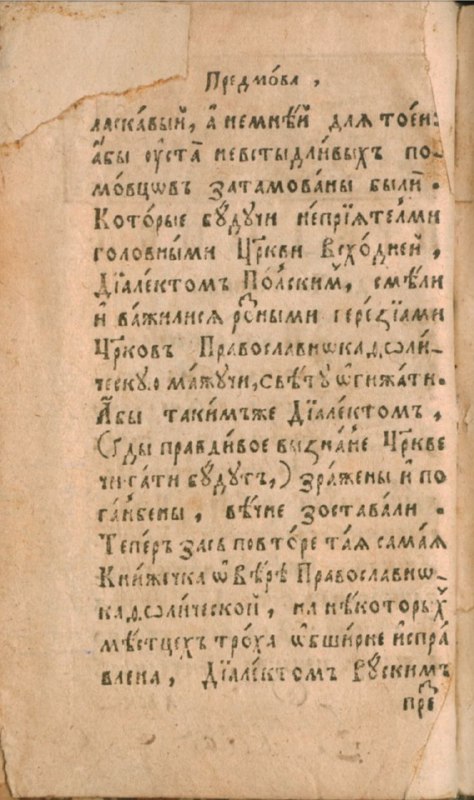 Предмо́ва ,
ласка́вый, а҆ немнѣ́й для тое́и:
а҆́бы ѹ҆ста̀ невстыдли́выхъ по-
мо́вцѡвъ затамова́ны былѝ .
Кото́рые бꙋ́дꙋчи непрїѧ́телѧми
головны́ми Цр҃кви Всхо́дней ,
Дїале́ктомъ По́лским, смѣ́ли
и҆ ва́жилися ро́зными гере́зїами
Цр҃ковъ Православнѡкаѳоли́-
ческую ма́жучи, свѣ́тꙋ
А҆́бы таки́мъже Дїале́ктомъ ,
(гды правди́вое вызна́нѐ Цр҃кве
чита́ти бꙋ́дꙋтъ,) зра́жены и҆ по
га́нбены , вѣ́чне зоста́вали .
Тепе́ръ засъ повто́ре та́ѧ сама́ѧ
Кни́жечка ѡ҆ Вѣ́рѣ Православнѡ-
каѳоли́ческой , на нѣ́которых̾
мѣ́стцехъ тро́ха ѡ҆бши́рне и҆спра́
влена , Дїале́ктомъ Рꙋ́скимъ
пре